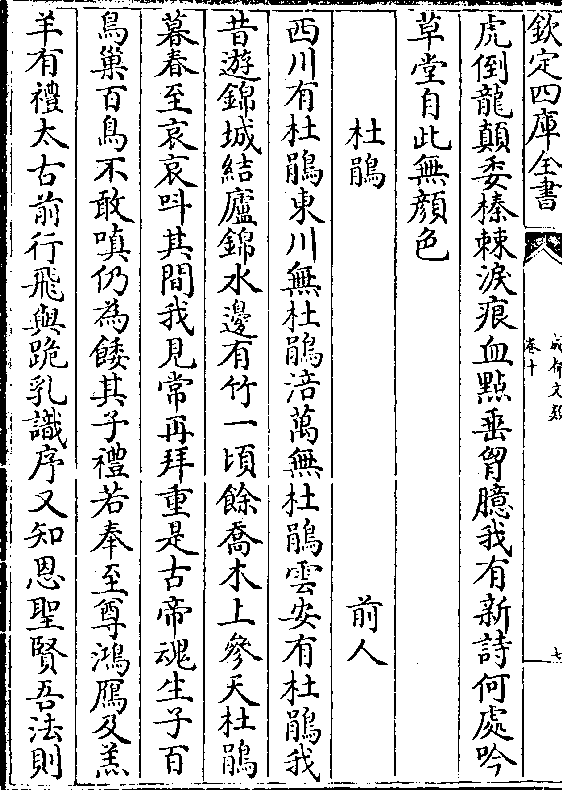 欽定四庫全書
成都文類
卷十
七
虎倒龍顛委榛棘淚痕血點垂胷臆我有新詩何處吟
草堂自此無顔色
杜鵑 前人
西川有杜鵑東川無杜鵑涪萬無杜鵑雲安有杜鵑我
昔遊錦城結廬錦水邊有竹一頃餘喬木上參天杜鵑
暮春至哀哀呌其間我見常再拜重是古帝魂生子百
鳥巢百鳥不敢嗔仍為餧其子禮若奉至尊鴻鴈及羔
羊有禮太古前行飛與跪乳識序又知恩聖賢吾法則